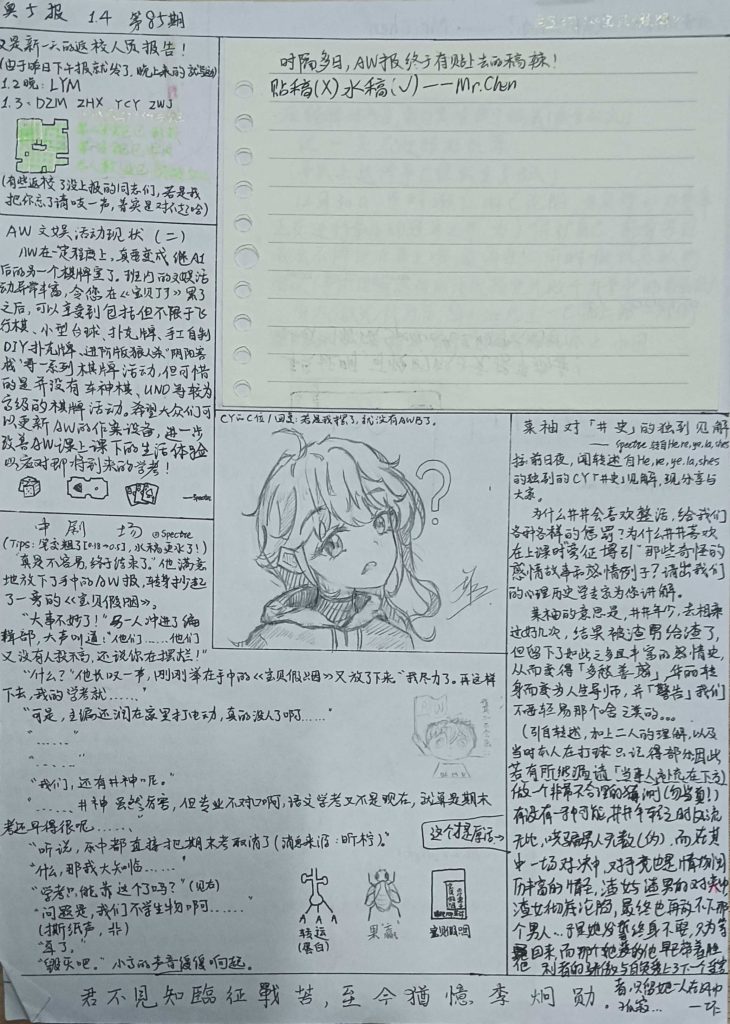 奥5报 1.4 第85期
又是新一天的返校人员报告！
(由于昨日下午报就发了，晚上来的就
1.2晚：LYM
1.3：DZM ZHX YCY ZWJ
(有些返校了没上报的同志们，若是我
把你忘了请吱一声，着实是对不起哈)
时隔多日，AW报终于有贴上去的稿辣！
贴稿(X) 水稿(√) ——Mr.Chen
AW文娱活动现状（二）
AW在一定程度上，真要变成继A1
后的另一个棋牌室了。班内的文娱活
动异常丰富，令您在《宝贝丁丁》累了
之后，可以享受到包括但不限于飞
行棋、小型台球、扑克牌、手工自制
DIY扑克牌、进阶版狼人杀"阴阳客
栈"等一系列棋牌活动，但可惜
的是并没有车神棋、UNO等较为
高级的棋牌活动。希望大众们可
以更新AW的作案设备，进一步
改善AW课上课下的生活体验
以应对即将到来的学考！
——Spectre
CY的C位/回复：若是我摆了，就没有AWB了。
？
中剧场 @Spectre
(Tips: 笔变粗了[0.38→0.5]，水稿更水了！)
"真是不容易，终于结束了。"他满意
地放下了手中的AW报，转身抄起
了一旁的《宝贝假期》。
"大事不妙了！"另一人冲进了编
辑部，大声叫道："他们……他们
又没有人投稿，还说你在摆烂！"
"什么？"他长叹一声，刚刚举在手中的《宝贝假期》又放了下来"我尽力了。再这样
下去，我的学考就……"
"可是，主编还润在家里打电动，真的没人了啊……"
"……"
"……"
"我们，还有井神呢。"
"……井神虽然厉害，但专业不对口啊，语文学考又不是现在，就算是期末
考还早得很呢……"
"听说，乐中都直接把期末考取消了（消息来源：昕柠）。"
"什么，那我大知临……"
"学考？能靠这个了吗？"（见右）
"问题是，我们不学生物啊……"
（撕纸声，非）
"寄了。"
"毁灭吧。"小子的声音缓缓响起。
转运
(蛋白)
果蠃
宝贝假期
某柚对「井史」的独到见解
—— Spectre 转自He,ve,ye,la,shes
括前日夜，闻转述自He,ve,ye,la,shes
的独到的CY「井史」见解，现分享与
大家。
为什么井井会喜欢整活，给我们
各种各样的惩罚？为什么井井喜欢
在上课时"旁征博引"那些奇怪的
感情故事和感情例子？请出我们
的心理历史学专家为你讲解。
某柚的意思是，井井年少，去相亲
过好几次，结果被渣男给渣了，
但留下了如此之多且丰富的感情史，
从而变得「多愁善感」，华丽转
身而变为人生导师，并「警告」我们
不要轻易那个啥之类的。。。
(引自转述，加上二人的理解，以及
当时本人在打球，只记得部分，因此
若有所纰漏请「当事人补充在下方」
做一个非常不合理的猜测(勿当真！)
有没有一种可能，井井年轻之时风流
无比，哄骗男人无数(伪)，而在其
中一场对决中，对手竟也是情场阅
历丰富的情圣，渣女与渣男的对决中
渣女彻底沦陷，最终也再动不了那
个男人…于是她发誓终身不娶，只为等
他回来，而那个
君不見知臨征戰苦，至今猶憶李炯勛。